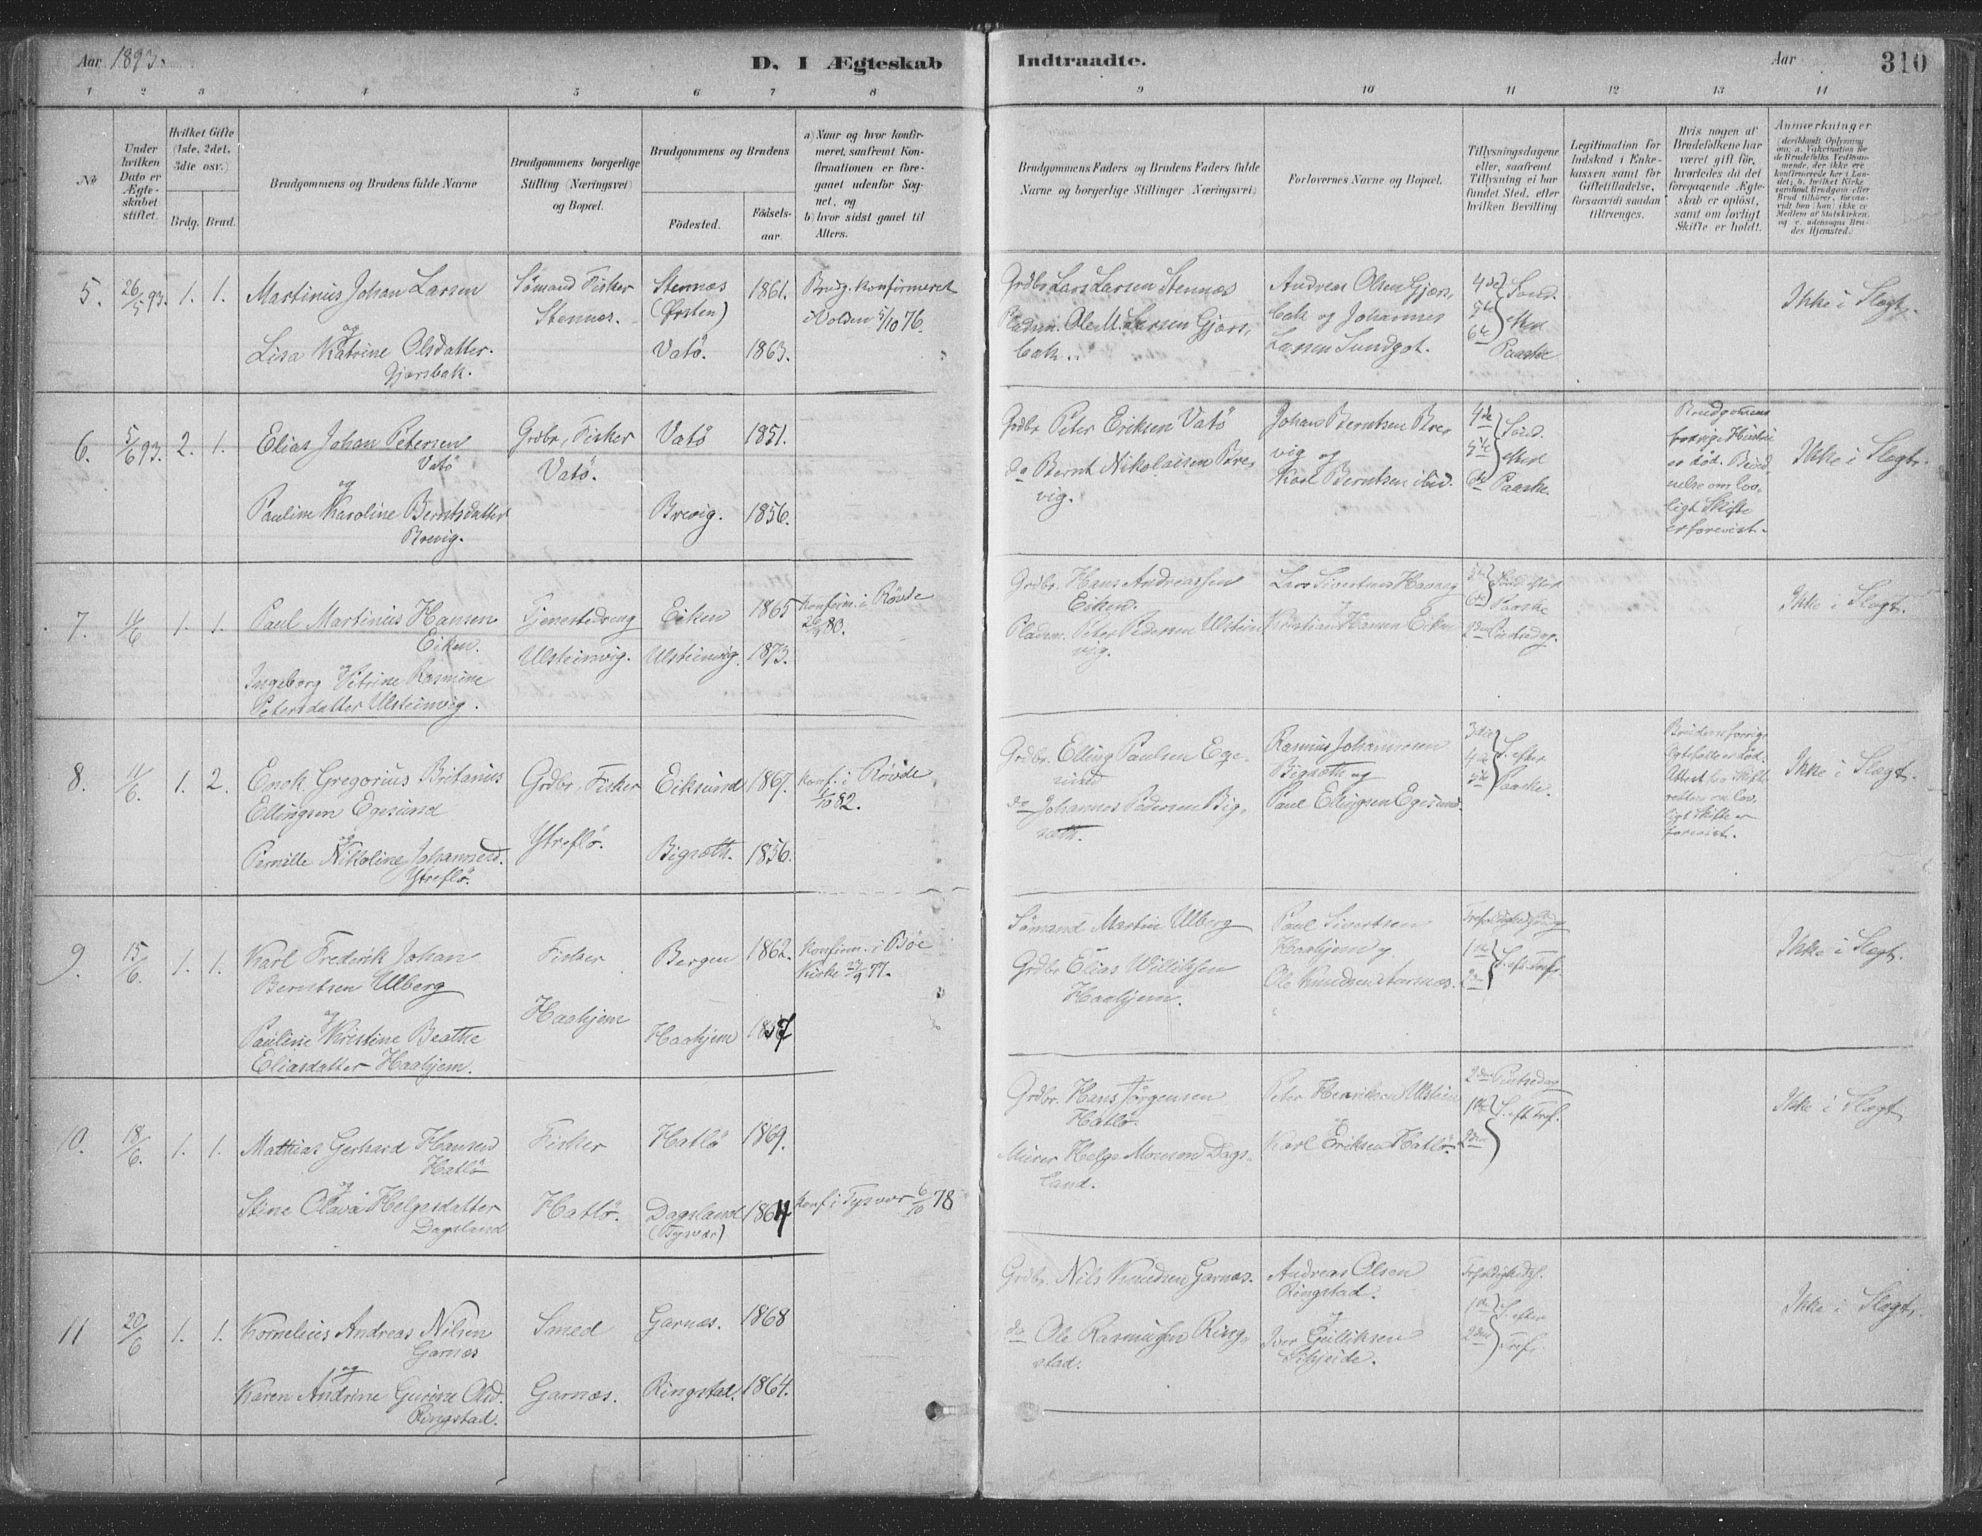 Aar 1893.
D. I Ægteskab
Indtraadte.
Aar
310
1 2 3 4 5 6 7 8 9 10 11 12 13 14
No
Under hvilken Dato er Ægteskabet stiftet.
Hvilket Gifte (1ste, 2det, 3die osv.)
Brdg. Brud.
Brudgommens og Brudens fulde Navne
Brudgommens borgerlige Stilling (Næringsvei) og Bopæl.
Brudgommens og Brudens
Födested.
Födselsaar.
a) Naar og hvor konfirmeret, saafremt Konfirmationen er foregaaet udenfor Sognet, og
b) hvor sidst gaaet til Alters.
Brudgommens Faders og Brudens Faders fulde Navne og borgerlige Stillinger (Næringsvei).
Forlovernes Navne og Bopæl.
Tillysningsdagene eller, saafremt Tillysning ei har fundet Sted, efter hvilken Bevilling
Legitimation for Indskud i Enkekassen samt for Giftetilladelse, forsaavidt saadan tiltrænges.
Hvis nogen af Brudefolkene har været gift för, hvorledes da det foregaaende Ægteskab er oplöst, samt om lovligt Skifte er holdt.
Anmærkninger
5. 26/5 93. 1. 1.
Martinus Johan Larsen
og
Lisa Katrine Olsdatter
Gjærsbak.
Sömand Fisker
Stennæs.
Stennæs
(Örsten)
Vatö.
1861.
1863.
Brudg. konfirmeret
i Volden 5/10 76.
Grdbr Lars Larsen Stennæs
Pladsm. Ole M. Larsen Gjærs,
bak.
Andreas Olsen Gjærs,
bak og Johannes
Larsen Sundgot.
4de
5te
6te
Sönd.
efter
Paaske
Ikke i Slægt.
6. 5/6 93. 2. 1.
Elias Johan Petersen
Vatö
og
Pauline Karoline Berntsdatter
Brevig.
Grdbr, Fisker
Vatö.
Vatö
Brevig.
1851.
1856.
Grdbr Peter Eriksen Vatö
do Bernt Nikolaisen Bre,
vig.
Johan Berntsen Bre,
vig og
Karl Berntsen ibid.
4de
5te
6te
Sönd.
efter
Paaske.
Brudgommens
forrige Hustru
er död. Bevid
nelse om lov,
ligt Skifte
er forevist.
Ikke i Slægt.
7. 11/6 1. 1.
Paul Martinus Hansen
Eiken.
og
Ingeborg Vitrine Rasmine
Petersdatter Ulsteinvig.
Tjenestedreng
Ulsteinvig.
Eiken
Ulsteinvig.
1865
1873.
Konfirm. i Rövde
80.
Grdbr. Hans Andreassen
Eiken.
Pladsm. Peter Pedersen Ulstein
vig.
Lars Sivertsen
og
Kristian Hansen Eiken
6te
Sönd. efter
Paaske
2den Pintsedag.
Ikke i Slægt.
8. 11/6. 1. 2.
Enok Gregorius Britanius
Ellingsen Egesund
og
Pernille Nikoline Johannesd.
Ytreflö.
Grdbr, Fisker
Ytreflö.
Eiksund
Bigsæth.
1867.
1856.
Konf. i Rövde
1/10 82.
Grdbr. Elling Paulsen Ege
sund
do Johannes Pedersen Big,
sæth.
Rasmus Johannesen
Bigsæth og
Paul Ellingsen Egesund.
3die
4de
5te
S. efter
Paaske.
Brudens forrige
Ægtefælle er död.
Attest fra Skifte
retten om lov,
ligt Skifte er
forevist.
Ikke i Slægt.
9. 15/6. 1. 1.
Karl Frederik Johan
Berntsen Ulberg
og
Pauline Kristine Beathe
Eliasdatter Haahjem.
Fisker
Haahjem
Bergen
Haahjem
1862.
1857
Konfirm. i Böe
Kirke 23/9 77.
Sömand Martin Ulberg
Grdbr Elias Williksen
Haahjem.
Paul Sivertsen
Haahjem og
Ole Knudsen
1ste
2den
S. eft. Tref.
Ikke i Slægt.
10. 18/6. 1. 1.
Mathias Gerhard Hansen
Hatlö
og
Stine Olava Helgesdatter
Dagsland
Fisker
Hatlö.
Hatlö
Dagsland
(Tysvær)
1869.
1864
Konf. i Tysvær 6/10 78
Grdbr. Hans Jörgensen
Hatlö.
Murer Helge Monsen Dags,
land.
Peter Henriksen Ulstein
og
Karl Eriksen Hatlö.
2den Pintsedag
1ste
2den
S. eft. Tref.
Ikke i Slægt
11 20/6 1. 1.
Kornelius Andreas Nilsen
Garnæs
og
Karen Andrine Gurine Olsd.
Ringstad.
Smed
Garnæs.
Garnæs.
Ringstad.
1868
1864.
Grdbr. Nils Knudsen Garnæs.
do Ole Rasmussen Ring,
stad.
Andreas Olsen
Ringstad.
og
Iver Gulliksen
1ste
2den
S. efter
Tref.
Ikke i Slægt.